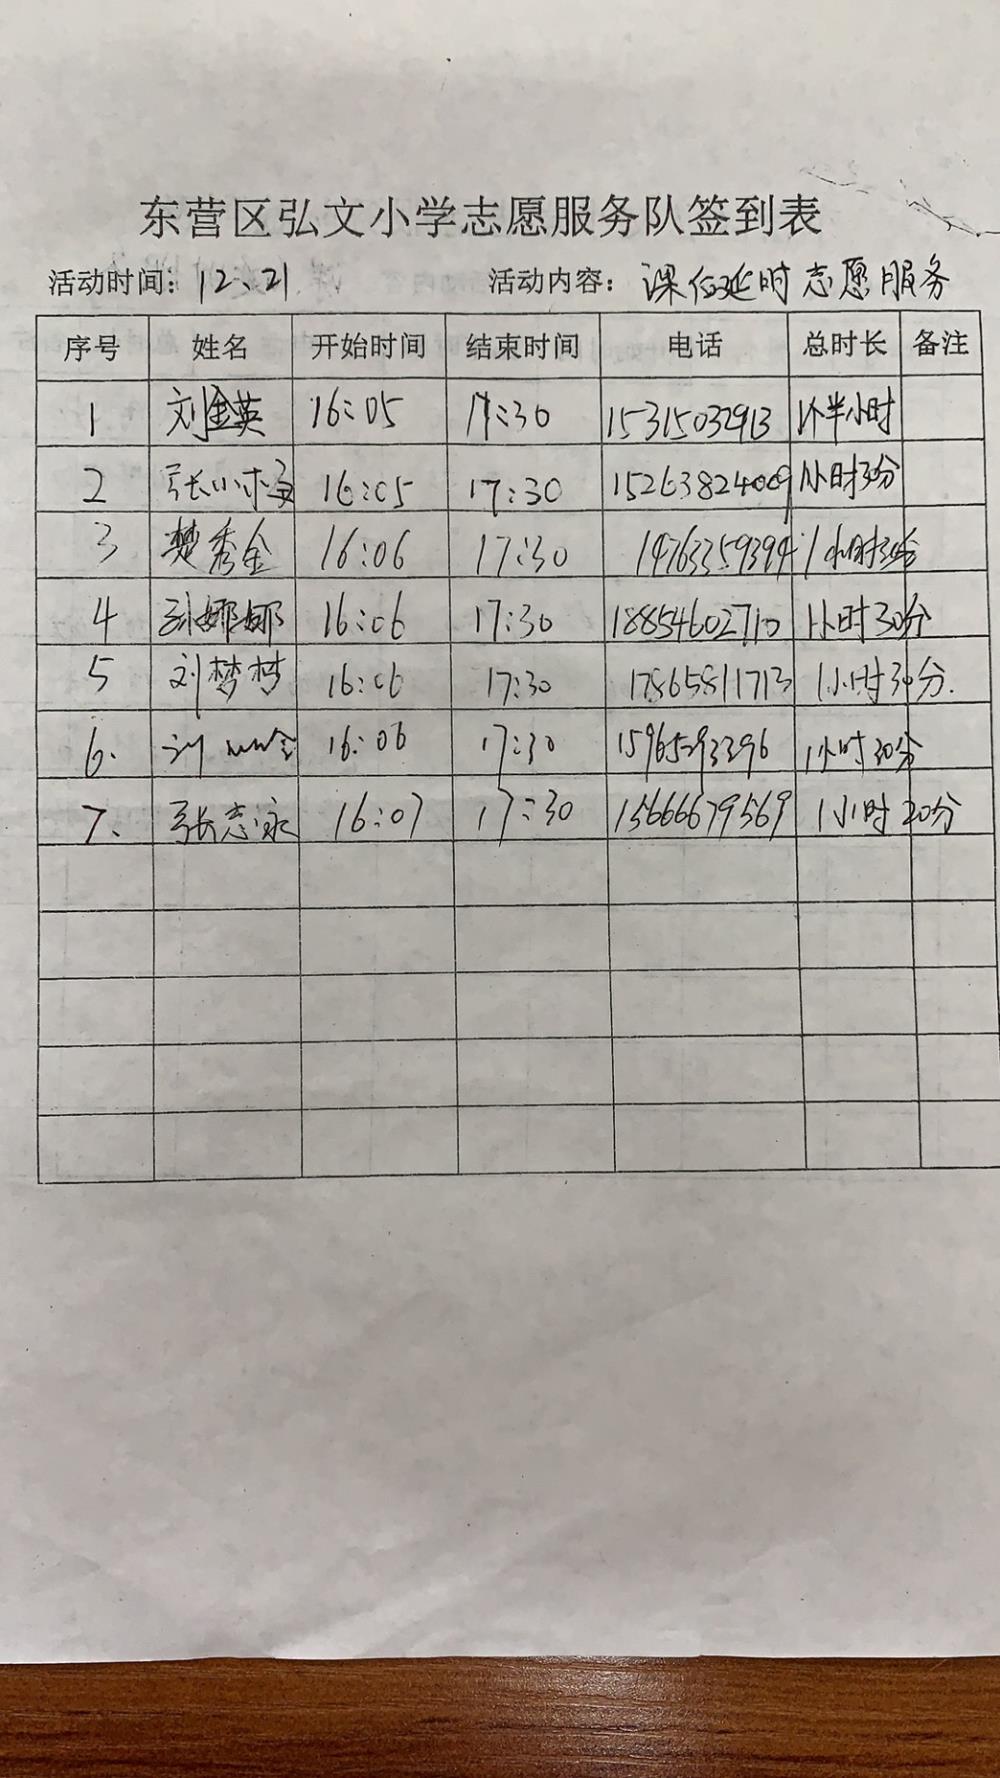 东营区弘文小学志愿服务队签到表
活动时间：12、21 活动内容：课后延时志愿服务
序号 姓名 开始时间 结束时间 电话 总时长 备注
1 刘金英 16:05 17:30 15315032913 1个半小时
2 张小 16:05 17:30 15263824009 1小时30分
3 楚秀金 16:06 17:30 14763259394 1小时30分
4 孙娜娜 16:06 17:30 18854602710 1小时30分
5 刘梦梦 16:06 17:30 17865811713 1小时30分.
6. 刘 16:06 17:30 15965293296 1小时30分
7、 张志泳 16:07 17:30 15666679569 1小时20分